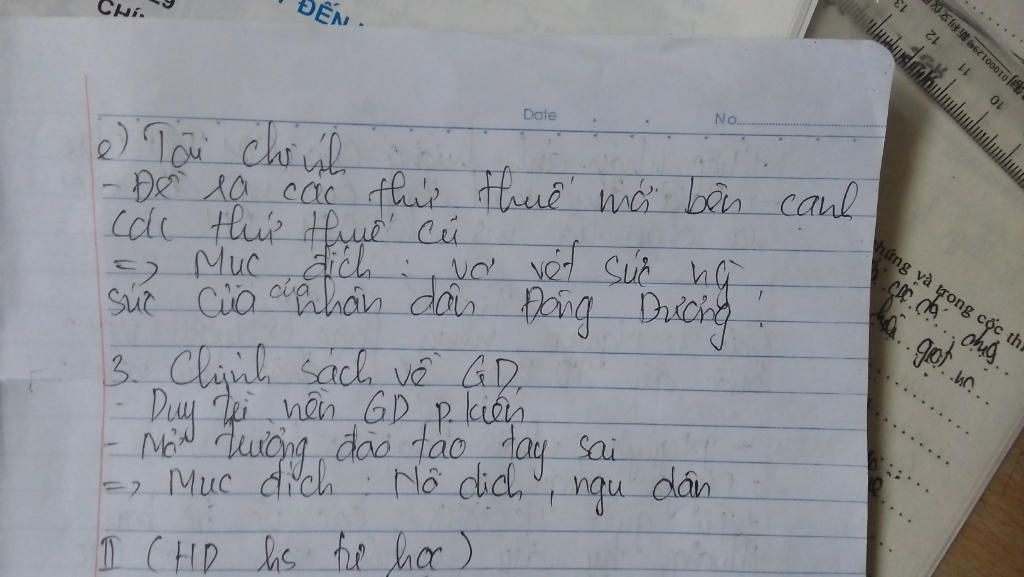 ĐẾN
Date No
e) Tài chính
- Đề ra các thứ thuế mới bên cạnh
các thứ thuế cũ
=> Mục đích : vơ vét sức ng
sức của của nhân dân Đông Dương !
3. Chính sách về GD
- Duy trì nền GD p.kiến
- Mở trường đào tạo tay sai
=> Mục đích : Nô dịch, ngu dân
II (HD hs tự học)
chứng và trong cốc th
13 12 11 10